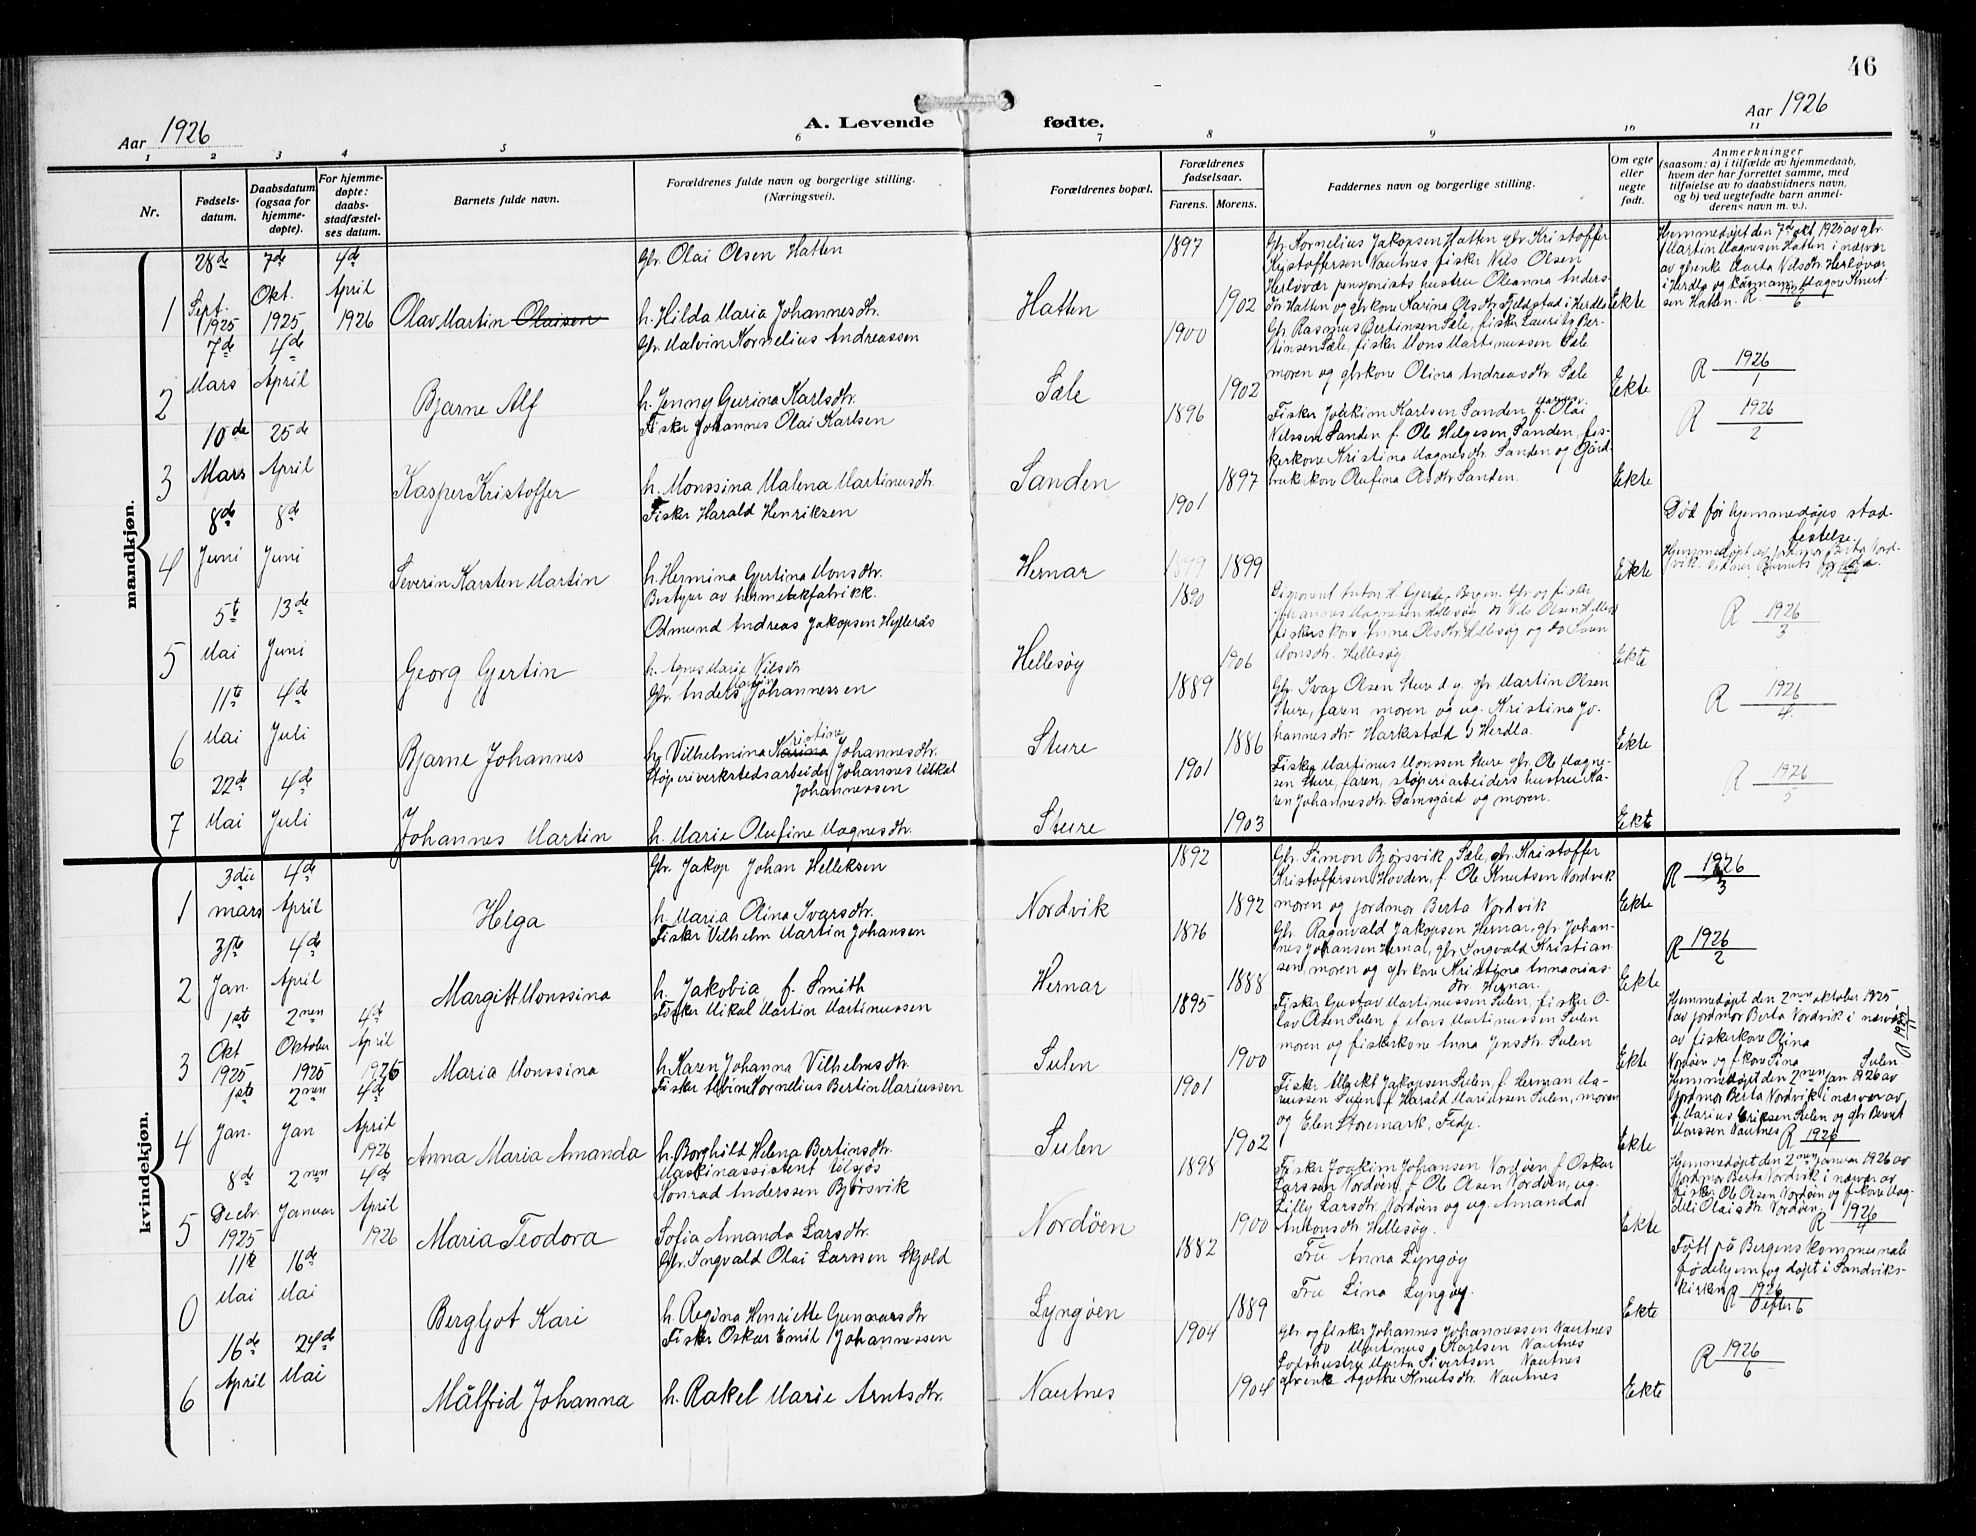 46
Aar 1926
A. Levende fødte.
Aar 1926
1 2 3 4 5 6 7 8 9 10 11
Nr.
Fødsels-
datum.
Daabsdatum
(ogsaa for
hjemme-
døpte).
For hjemme-
døpte:
daabs-
stadfæstel-
ses datum.
Barnets fulde navn.
Forældrenes fulde navn og borgerlige stilling.
(Næringsvei).
Forældrenes bopæl.
Forældrenes
fødselsaar.
Farens. Morens.
Faddernes navn og borgerlige stilling.
Om egte
eller
uegte
født.
Anmerkninger
(saasom: a) i tilfælde av hjemmedaab,
hvem der har forrettet samme, med
tilføielse av to daabsvidners navn,
og b) ved uegtefødte barn anmel-
derens navn m. v.).
mandkjøn.
1
28de
Sept.
1925
7de
Okt.
1925
4de
April
1926
Olav Martin Olaisen
Gbr. Olai Olsen Hatten
h. Hilda Maria Johannesdtr.
Hatten
1897
1902
Gbr. Kornelius Jakopsen Hatten gbr Kristoffer
Kristoffersen Nautnes fisker Nils Olsen
Herløvær pensjonists hustru Oleanna Anders-
dtr Hatten og gbrkone Karina Olsdtr Fjeldstad i Herdla
Ekte
Hjemmedøpt den 7de okt. 1925 av gbr.
Martin Magnesen Hatten i nærvær
av gbrenke Marta Nilsdtr. Herløvær
i Herdla og Magne Knut-
sen Hatten. R 1926/6
2
7de
Mars
4de
April
Bjarne Alf
Gbr. Malvin Kornelius Andreassen
h. Jenny Gurina Karlsdtr.
Sæle
1900
1902
Gbr Rasmus Bertinsen Sæle, fisker Lauritz Ber-
tinsen Sæle, fisker Mons Martinussen Sæle
moren og gbrkone Olina Andreasdtr. Sæle
Ekte
R 1926/1
3
10de
Mars
25de
April
Kasper Kristoffer
Fisker Johannes Olai Karlsen
h. Monssina Malena Martinusdtr.
Sanden
1896
1897
Fisker Joakim Karlsen Sanden f. Olai
Nilssen Sanden f. Ole Helgesen Sanden, fis-
kerkone Kristina Magnesdtr. Sanden og Gård-
bruk kone Olufina Olsdtr Sanden.
Ekte
R 1926/2
4
8de
Juni
8de
Juni
Severin Karsten Martin
Fisker Harald Henriksen
h. Hermina Gjertina Monsdtr.
Hernar
1901
1899 1899
Ekte
Død før hjemmedøps stad-
festelse.
Hjemmedøpt av jordmor Berta Nord-
vik.
5
5t
Mai
13de
Juni
Georg Gjertin
Bestyrer av hermetikfabrikk.
Odmund Andreas Jakopsen Hylleraas
h. Agnes Marie Nilsdtr
Hellesøy
1890
1906
Disponent Anton H. Gjerde, Bergen. Gbr og fisker
Johannes Magnesen Hellesøy do Nils Olsen Hellesøy
fiskerskone Anna Olsdtr. Hellesøy og do
Monsdtr. Hellesøy.
Ekte
R 1926/3
6
11te
Mai
4de
Juli
Bjarne Johannes
Gbr. Anders Johannessen
h. Vilhelmina Karina Kristine Johannesdtr.
Sture
1889
1886
Gbr Ivar Olsen Sture d.y. gbr Martin Olsen
Sture, faren moren og ug. Kristina Jo-
hannesdtr Harkestad i Herdla.
Ekte
R 1926/4
7
22de
Mai
4de
Juli
Johannes Martin
Støperiverkstedsarbeider Johannes Mikal
Johannessen
h. Marie Olufine Magnesdtr.
Sture
1901
1903
Fisker Martinus Monssen Sture gbr. Ole Magne-
sen Sture, faren, støperiarbeiders hustru Ka-
ren Johannesdtr. Damsgård og moren.
Ekte
R 1926/5
kvindekjøn.
1
3die
mars
4de
April
Helga
Gbr. Jakop Johan Helleksen
h. Maria Olina Ivarsdtr.
Nordvik
1892
1892
Gbr. Simon Bjørsvik Sæle, gbr. Kristoffer
Kristoffersen Hovden, f. Ole Knutsen Nordvik
moren og jordmor Berta Nordvik
Ekte
R 1926/3
2
31te
Jan.
4de
April
Margitt Monssina
Fisker Vilhelm Martin Johansen
h. Jakobia f. Smith
Hernar
1876
1888
Gbr. Ragnvald Jakopsen Hernar, gbr. Johan-
nes Johansen Hernar, gbr. Ingvald Kristian-
sen, moren og gbrkone Kristina Annanias-
dtr. Hernar.
Ekte
R 1926/2
3
1st
Okt
1925
2nen
Oktober
1925
4de
April
1926
Maria Monssina
Fisker Mikal Martin Martinussen
h. Karen Johanna Vilhelmsdtr.
Sulen
1895
1900
Fisker Gustav Martinussen Sulen, fisker O-
lav Olsen Sulen f. Mons Martinussen Sulen
moren og fiskerkone Anna Jensdtr. Sulen
Ekte
Hjemmedøpt den 2nen oktober 1925
av jordmor Berta Nordvik i nærvær
av fiskerkone Olina
Nordøen og f. kone Lina Sulen
4
1ste
Jan.
2nen
Jan
4de
April
1926
Anna Maria Amanda
Fisker Alvin Kornelius Bertin Mariussen
h. Borghild Helena Bertinsdtr.
Sulen
1901
1902
Fisker Mikkel Jakopsen Sulen, f. Herman Ma-
riussen Sulen, f. Harald Mariussen Sulen, moren
og Elen Storemark, Fedje.
Ekte
Hjemmedøpt den 2nen jan 1926 av
jordmor Berta Nordvik i nærvær av
f. Marius Eriksen Sulen og gbr Bernt
Monssen Nautnes R 1926
5
8de
Decbr.
1925
2nen
Januar
4de
April
1926
Maria Teodora
Maskinassistent tilsjøs
Konrad Anderssen Bjørsvik
Sofia Amanda Larsdtr.
Nordøen
1898
1900
Fisker Joakim Johansen Nordøen f. Oskar
Larssen Nordøen f. Ole Olsen Nordøen, ug.
Lilly Larsdtr. Nordøen og ug. Amanda
Antonsdtr. Hellesøy.
Ekte
Hjemmedøpt den 2nen januar 1926 av
jordmor Berta Nordvik i nærvær av
fisker Ole Olsen Nordøen og f. kone Mag-
deli Olaisdtr. Nordøen. R 1926/4
0
11te
Mai
16de
Mai
Bergljot Kari
Gbr. Ingvald Olai Larssen Skjold
h. Regina Henriette Gunnarsdtr
Lyngøen
1882
1889
Fru Anna Lyngøy
Fru Lina Lyngøy.
Ekte
Født på Bergens kommunale
fødehjem og døpt i Sandviks-
kirken R 1926/efter 6
6
16de
April
24de
Mai
Målfrid Johanna
Fisker Oskar Emil Johannessen
h. Rakel Marie Arntsdtr.
Nautnes
1904
1904
Gbr og fisker Johannes Johannessen Nautnes
do Martinus Karlsen Nautnes
Loshustru Marta Sivertsen Nautnes
gbrenke Agathe Knutsdtr. Nautnes
Ekte
R 1926/6